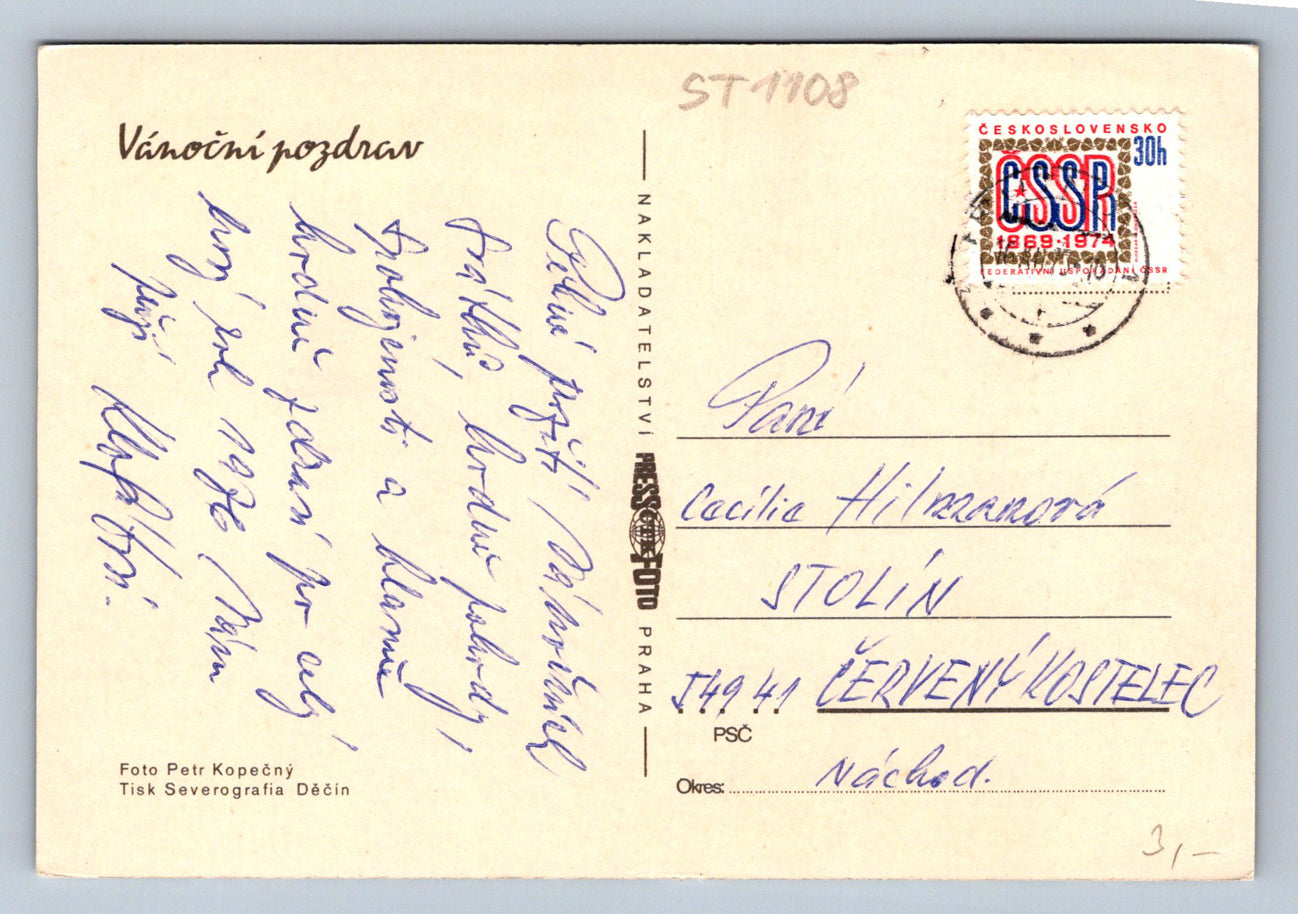 ST 1108
Vánoční pozdrav
Pěkné prožití Vánočních
svátků, hodně pohody,
spokojenosti a hlavně
hodně zdraví po celý
nový rok 1976 Vám
přejí
NAKLADATELSTVÍ PRESSFOTO PRAHA
Foto Petr Kopečný
Tisk Severografia Děčín
ČESKOSLOVENSKO
30h
ČSSR
1869·1974
FEDERATIVNÍ USPOŘÁDÁNÍ ČSSR
Paní
Cecílie Hilmanová
STOLÍN
549 41 ČERVENÝ KOSTELEC
PSČ
Okres: Náchod.
3,-